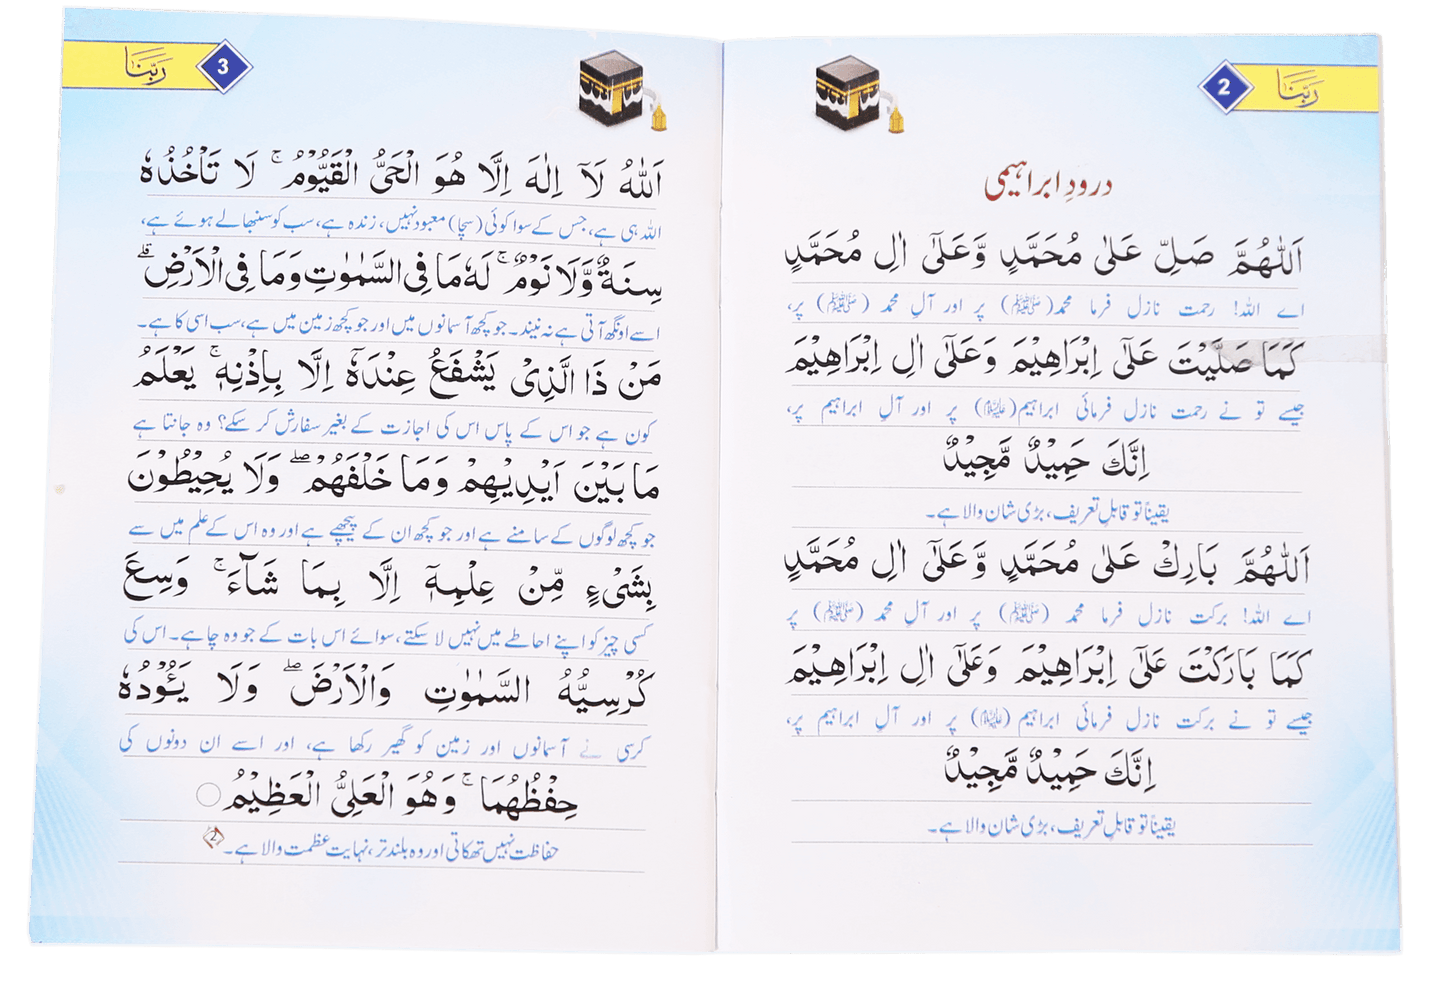 ربنا
2
درودِ ابراہیمی
اَللّٰهُمَّ صَلِّ عَلٰى مُحَمَّدٍ وَّعَلٰٓى اٰلِ مُحَمَّدٍ
اے اللہ! رحمت نازل فرما محمد(ﷺ) پر اور آلِ محمد (ﷺ) پر،
كَمَا صَلَّيْتَ عَلٰٓى اِبْرَاهِيْمَ وَعَلٰٓى اٰلِ اِبْرَاهِيْمَ
جیسے تو نے رحمت نازل فرمائی ابراہیم(علیہ السلام) پر اور آلِ ابراہیم پر،
اِنَّكَ حَمِيْدٌ مَّجِيْدٌ
یقیناً تو قابلِ تعریف، بڑی شان والا ہے۔
اَللّٰهُمَّ بَارِكْ عَلٰى مُحَمَّدٍ وَّعَلٰٓى اٰلِ مُحَمَّدٍ
اے اللہ! برکت نازل فرما محمد (ﷺ) پر اور آلِ محمد (ﷺ) پر
كَمَا بَارَكْتَ عَلٰٓى اِبْرَاهِيْمَ وَعَلٰٓى اٰلِ اِبْرَاهِيْمَ
جیسے تو نے برکت نازل فرمائی ابراہیم (علیہ السلام) پر اور آلِ ابراہیم پر،
اِنَّكَ حَمِيْدٌ مَّجِيْدٌ
یقیناً تو قابلِ تعریف، بڑی شان والا ہے۔
3
رَبَّنَا
اَللّٰهُ لَآ اِلٰهَ اِلَّا هُوَ الْحَىُّ الْقَيُّوْمُ ۚ لَا تَاْخُذُهٗ
اللہ ہی ہے، جس کے سوا کوئی (سچا) معبود نہیں، زندہ ہے، سب کو سنبھالے ہوئے ہے،
سِنَةٌ وَّلَا نَوْمٌ ۚ لَهٗ مَا فِى السَّمٰوٰتِ وَمَا فِى الْاَرْضِ ۗ
اسے اونگھ آتی ہے نہ نیند۔ جو کچھ آسمانوں میں اور جو کچھ زمین میں ہے، سب اسی کا ہے۔
مَنْ ذَا الَّذِىْ يَشْفَعُ عِنْدَهٗٓ اِلَّا بِاِذْنِهٖ ۚ يَعْلَمُ
کون ہے جو اس کے پاس اس کی اجازت کے بغیر سفارش کر سکے؟ وہ جانتا ہے
مَا بَيْنَ اَيْدِيْهِمْ وَمَا خَلْفَهُمْ ۖ وَلَا يُحِيْطُوْنَ
جو کچھ لوگوں کے سامنے ہے اور جو کچھ ان کے پیچھے ہے اور وہ اس کے علم میں سے
بِشَىْءٍ مِّنْ عِلْمِهٖٓ اِلَّا بِمَا شَآءَ ۚ وَسِعَ
کسی چیز کو اپنے احاطے میں نہیں لا سکتے، سوائے اس بات کے جو وہ چاہے۔ اس کی
كُرْسِيُّهُ السَّمٰوٰتِ وَالْاَرْضَ ۖ وَلَا يَئُوْدُهٗ
کرسی نے آسمانوں اور زمین کو گھیر رکھا ہے، اور اسے ان دونوں کی
حِفْظُهُمَا ۚ وَهُوَ الْعَلِىُّ الْعَظِيْمُ
حفاظت نہیں تھکاتی اور وہ بلند تر، نہایت عظمت والا ہے۔ 2